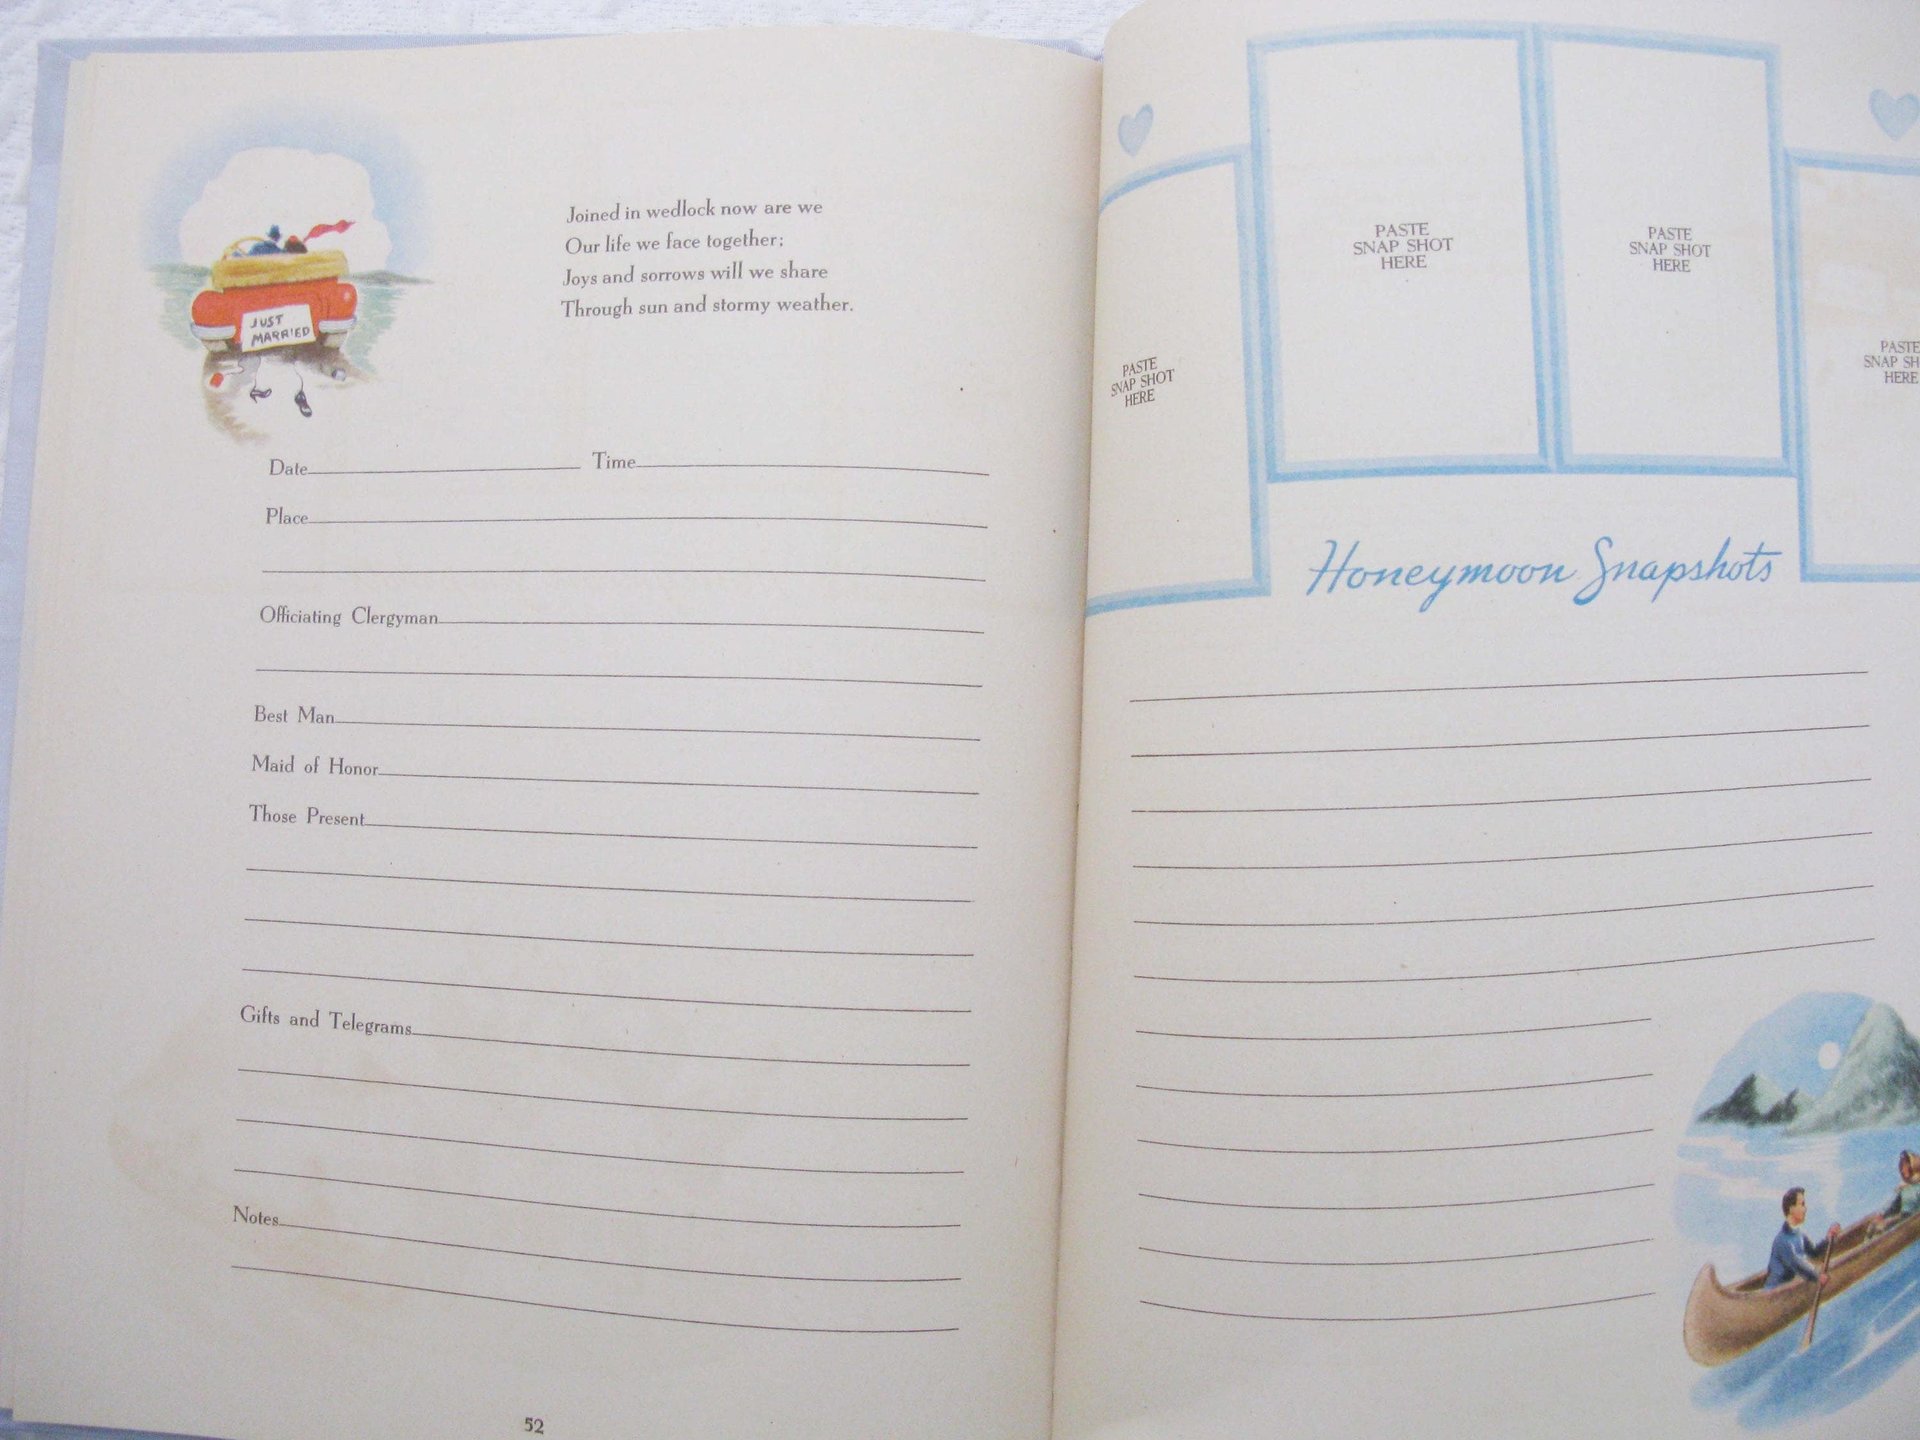 JUST
MARRIED
Joined in wedlock now are we
Our life we face together;
Joys and sorrows will we share
Through sun and stormy weather.
Date Time
Place
Officiating Clergyman
Best Man
Maid of Honor
Those Present
Gifts and Telegrams
Notes
52
PASTE
SNAP SHOT
HERE
PASTE
SNAP SHOT
HERE
PASTE
SNAP SHOT
HERE
PASTE
SNAP SH
HERE
Honeymoon Snapshots